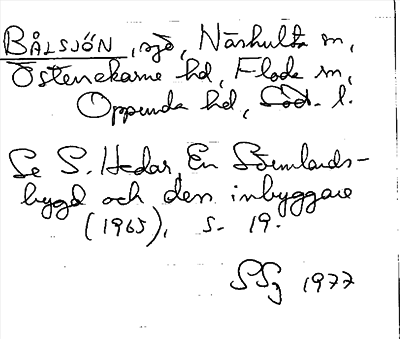 BÅLSJÖN, sjö, Närhulta sn,
Östenekarne hd, Floda sn,
Oppunda hd, Söd. l.
Se S. Hedar, En Sörmlands-
bygd och dess inbyggare
(1965), s. 19.
SSg 1977